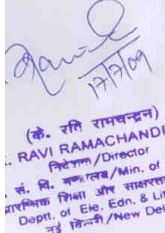 17/7/09
(के. रवि रामचन्द्रन)
. RAVI RAMACHANDR
निदेशक/Director
. सं. वि. मन्त्रालय/Min. of
प्रारम्भिक शिक्षा और साक्षरता
Deptt. of Ele. Edn. & Lit
नई दिल्ली/New Del